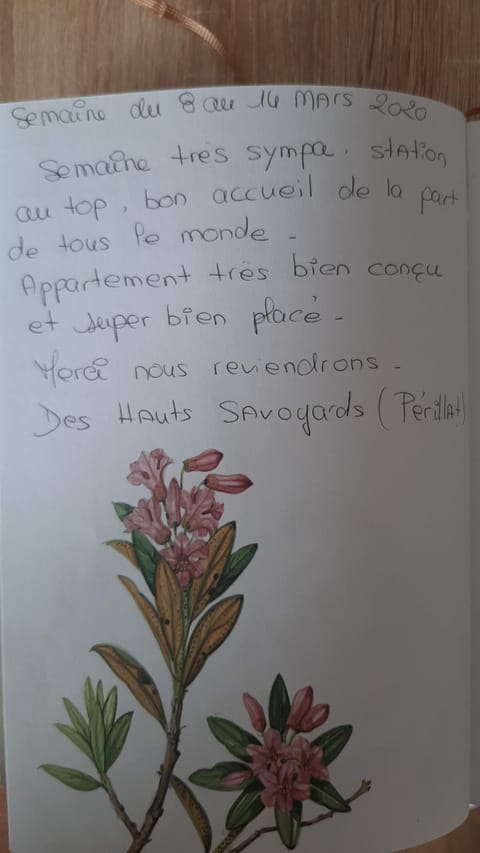 Semaine du 8 au 14 MARS 2020
Semaine très sympa, station
au top, bon accueil de la part
de tous le monde -
Appartement très bien conçu
et super bien placé -
Merci nous reviendrons -
Des HAuts SAvoyards (PérillAt)